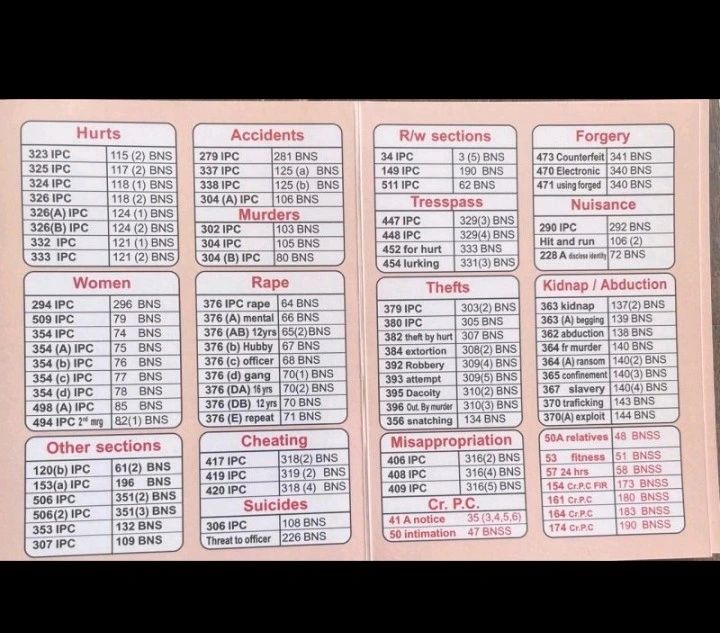 Hurts
323 IPC 115 (2) BNS
325 IPC 117 (2) BNS
324 IPC 118 (1) BNS
326 IPC 118 (2) BNS
326(A) IPC 124 (1) BNS
326(B) IPC 124 (2) BNS
332 IPC 121 (1) BNS
333 IPC 121 (2) BNS
Women
294 IPC 296 BNS
509 IPC 79 BNS
354 IPC 74 BNS
354 (A) IPC 75 BNS
354 (b) IPC 76 BNS
354 (c) IPC 77 BNS
354 (d) IPC 78 BNS
498 (A) IPC 85 BNS
494 IPC 2nd mrg 82(1) BNS
Other sections
120(b) IPC 61(2) BNS
153(a) IPC 196 BNS
506 IPC 351(2) BNS
506(2) IPC 351(3) BNS
353 IPC 132 BNS
307 IPC 109 BNS
Accidents
279 IPC 281 BNS
337 IPC 125 (a) BNS
338 IPC 125 (b) BNS
304 (A) IPC 106 BNS
Murders
302 IPC 103 BNS
304 IPC 105 BNS
304 (B) IPC 80 BNS
Rape
376 IPC rape 64 BNS
376 (A) mental 66 BNS
376 (AB) 12yrs 65(2)BNS
376 (b) Hubby 67 BNS
376 (c) officer 68 BNS
376 (d) gang 70(1) BNS
376 (DA) 16 yrs 70(2) BNS
376 (DB) 12 yrs 70 BNS
376 (E) repeat 71 BNS
Cheating
417 IPC 318(2) BNS
419 IPC 319 (2) BNS
420 IPC 318 (4) BNS
Suicides
306 IPC 108 BNS
Threat to officer 226 BNS
R/w sections
34 IPC 3 (5) BNS
149 IPC 190 BNS
511 IPC 62 BNS
Tresspass
447 IPC 329(3) BNS
448 IPC 329(4) BNS
452 for hurt 333 BNS
454 lurking 331(3) BNS
Thefts
379 IPC 303(2) BNS
380 IPC 305 BNS
382 theft by hurt 307 BNS
384 extortion 308(2) BNS
392 Robbery 309(4) BNS
393 attempt 309(5) BNS
395 Dacoity 310(2) BNS
396 Out. By murder 310(3) BNS
356 snatching 134 BNS
Misappropriation
406 IPC 316(2) BNS
408 IPC 316(4) BNS
409 IPC 316(5) BNS
Cr. P.C.
41 A notice 35 (3,4,5,6)
50 intimation 47 BNSS
Forgery
473 Counterfeit 341 BNS
470 Electronic 340 BNS
471 using forged 340 BNS
Nuisance
290 IPC 292 BNS
Hit and run 106 (2)
228 A disclose identity 72 BNS
Kidnap / Abduction
363 kidnap 137(2) BNS
363 (A) begging 139 BNS
362 abduction 138 BNS
364 fr murder 140 BNS
364 (A) ransom 140(2) BNS
365 confinement 140(3) BNS
367 slavery 140(4) BNS
370 traficking 143 BNS
370(A) exploit 144 BNS
50A relatives 48 BNSS
53 fitness 51 BNSS
57 24 hrs 58 BNSS
154 Cr.P.C FIR 173 BNSS
161 Cr.P.C 180 BNSS
164 Cr.P.C 183 BNSS
174 Cr.P.C 190 BNSS